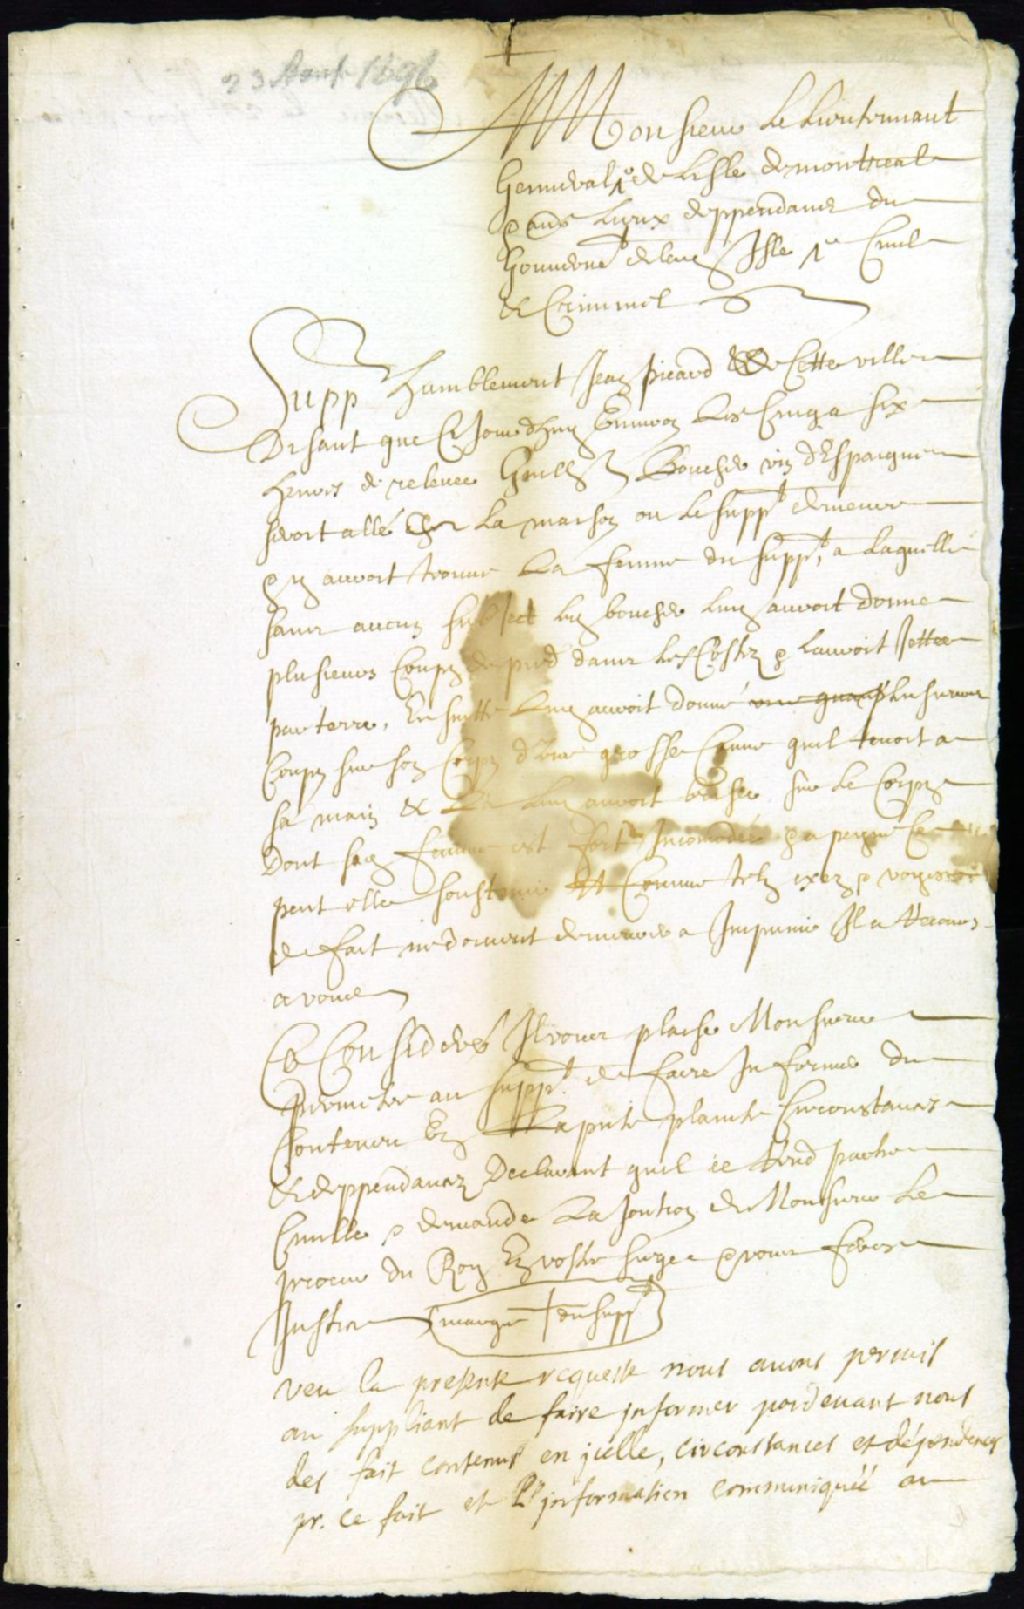 23 Aout 1696
Monsieur Le Lieutennant
Genneral de Lisle de montreal
& aues Lieux deppendans du
Gouvernet de lad Isle Civil
& Criminel
Supp humblement Jean picard de Cette ville
Disant que Ce Jourdhuy Environ Les Cinq a six
heures de relevee Guille Boucher dit dEspargne
seroit allé Chez La maison ou Le suppt demeure
& y auroit trouvé La femme du suppt, a laquelle
sans aucun subject led boucher luy auroit donné
plusieurs Coups de pied dans les Costez & lauroit Jettee
par terre, En suitte Luy auroit donné plusieurs
Coups sur son Corps d'une grosse Canne quil tenoit a
sa main & La Luy auroit sur Le Corps
Dont sad femme est fort Incomodée & a peyne Ce
peut elle soustenir Et Comme telz exez & voyes
de fait ne doivent demeurer Impunie Il a recours
a vous
Ce Consideré Il vous plaise Monsieur
permettre au suppt de faire Informer du
Contenu En La pnte plainte Circonstances
& deppendances Declarant quil ce Rend partie
Civille & demande La Jontion de Monsieur Le
procur du Roy En vostre siege & vous ferez
Justice marque + du suppt
veu la presente requeste nous avons permis
au suppliant de faire informer pardevant nous
des fait contenus en jcelle, circonstances et dépendences
pr. ce fait et L'information communiquée au